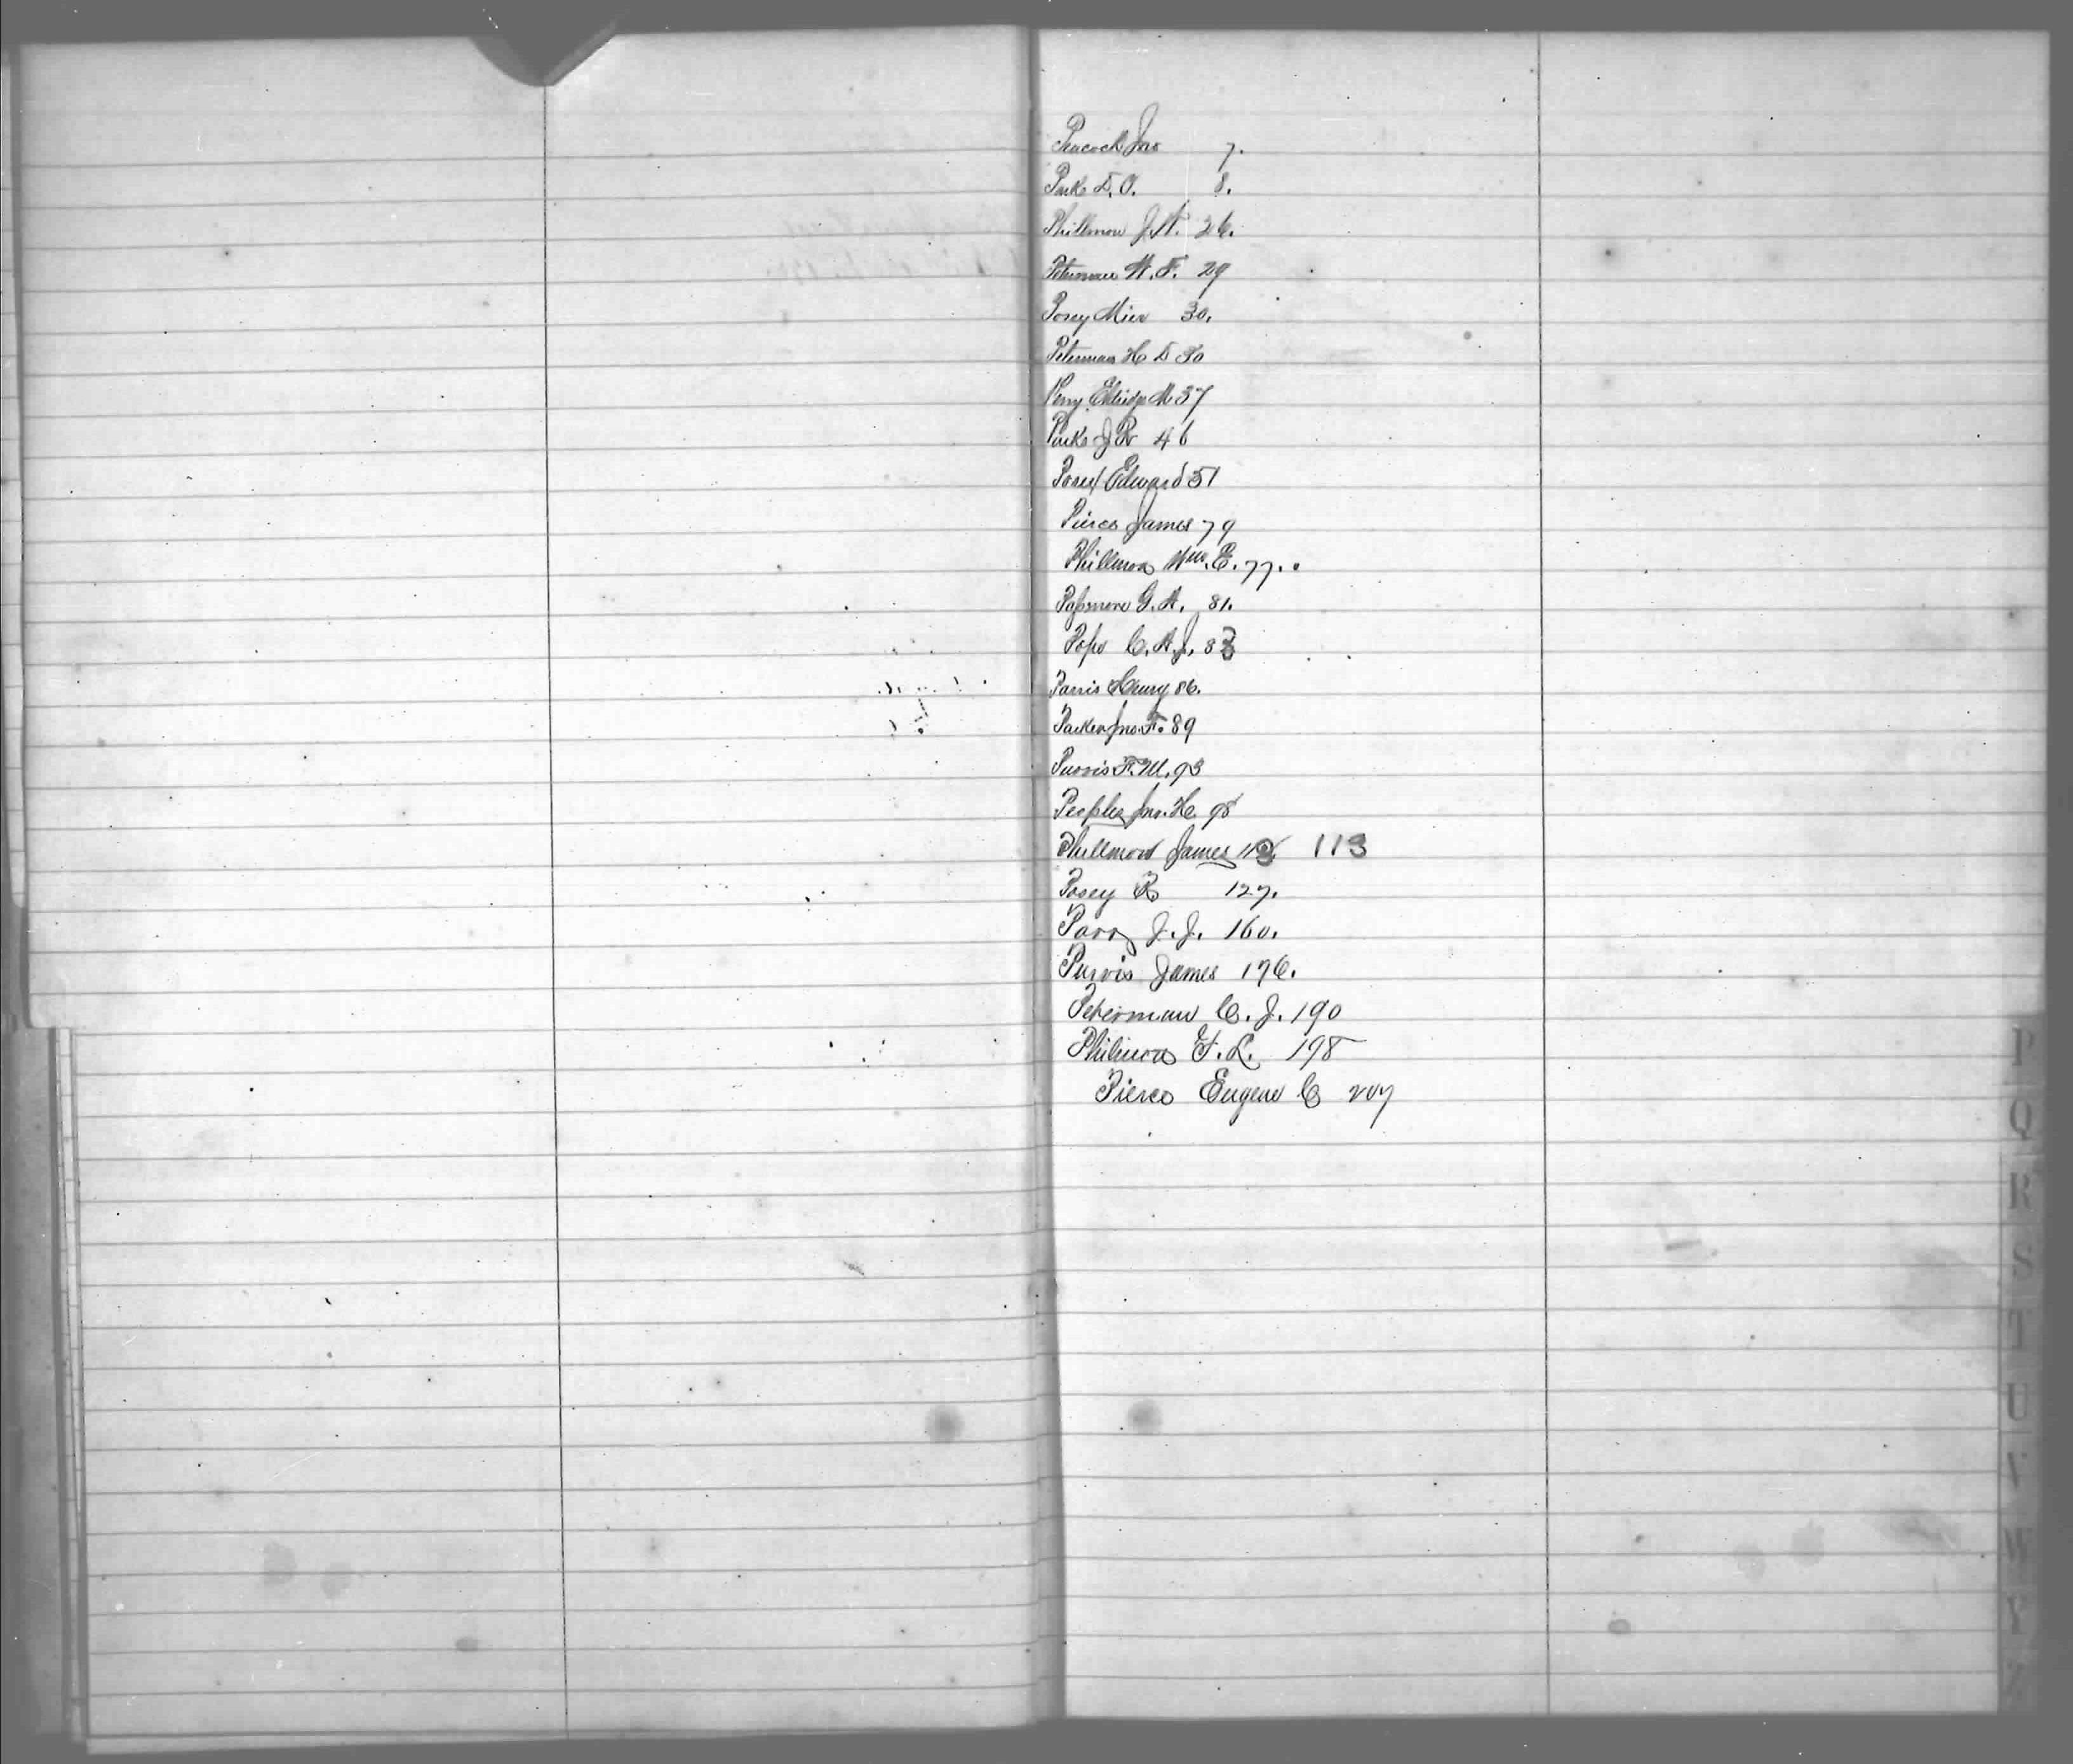 Peacock Jno 7.
Parks D. O. 8.
Phillmon J. A. 26.
Peterman W. F. 29
Posey Mier 30.
Peterman H D 30
Perry Elbridge M 37
Parks J R 46
Posey Edward 51
Pierce James 79
Phillmon Wm. E. 77.
Passmore G. A. 81.
Pope C. A. J. 83
Parris Henry 86.
Parker Jno. F. 89
Purvis F. M. 93
Peoples Jno. H. 98
Phillmon James 113
Posey R 127.
Parr J. J. 160.
Purvis James 176.
Peterman C. J. 190
Philmon F. L. 198
Pierce Eugene C 207
P
Q
R
S
T
U
V
W
Y
Z